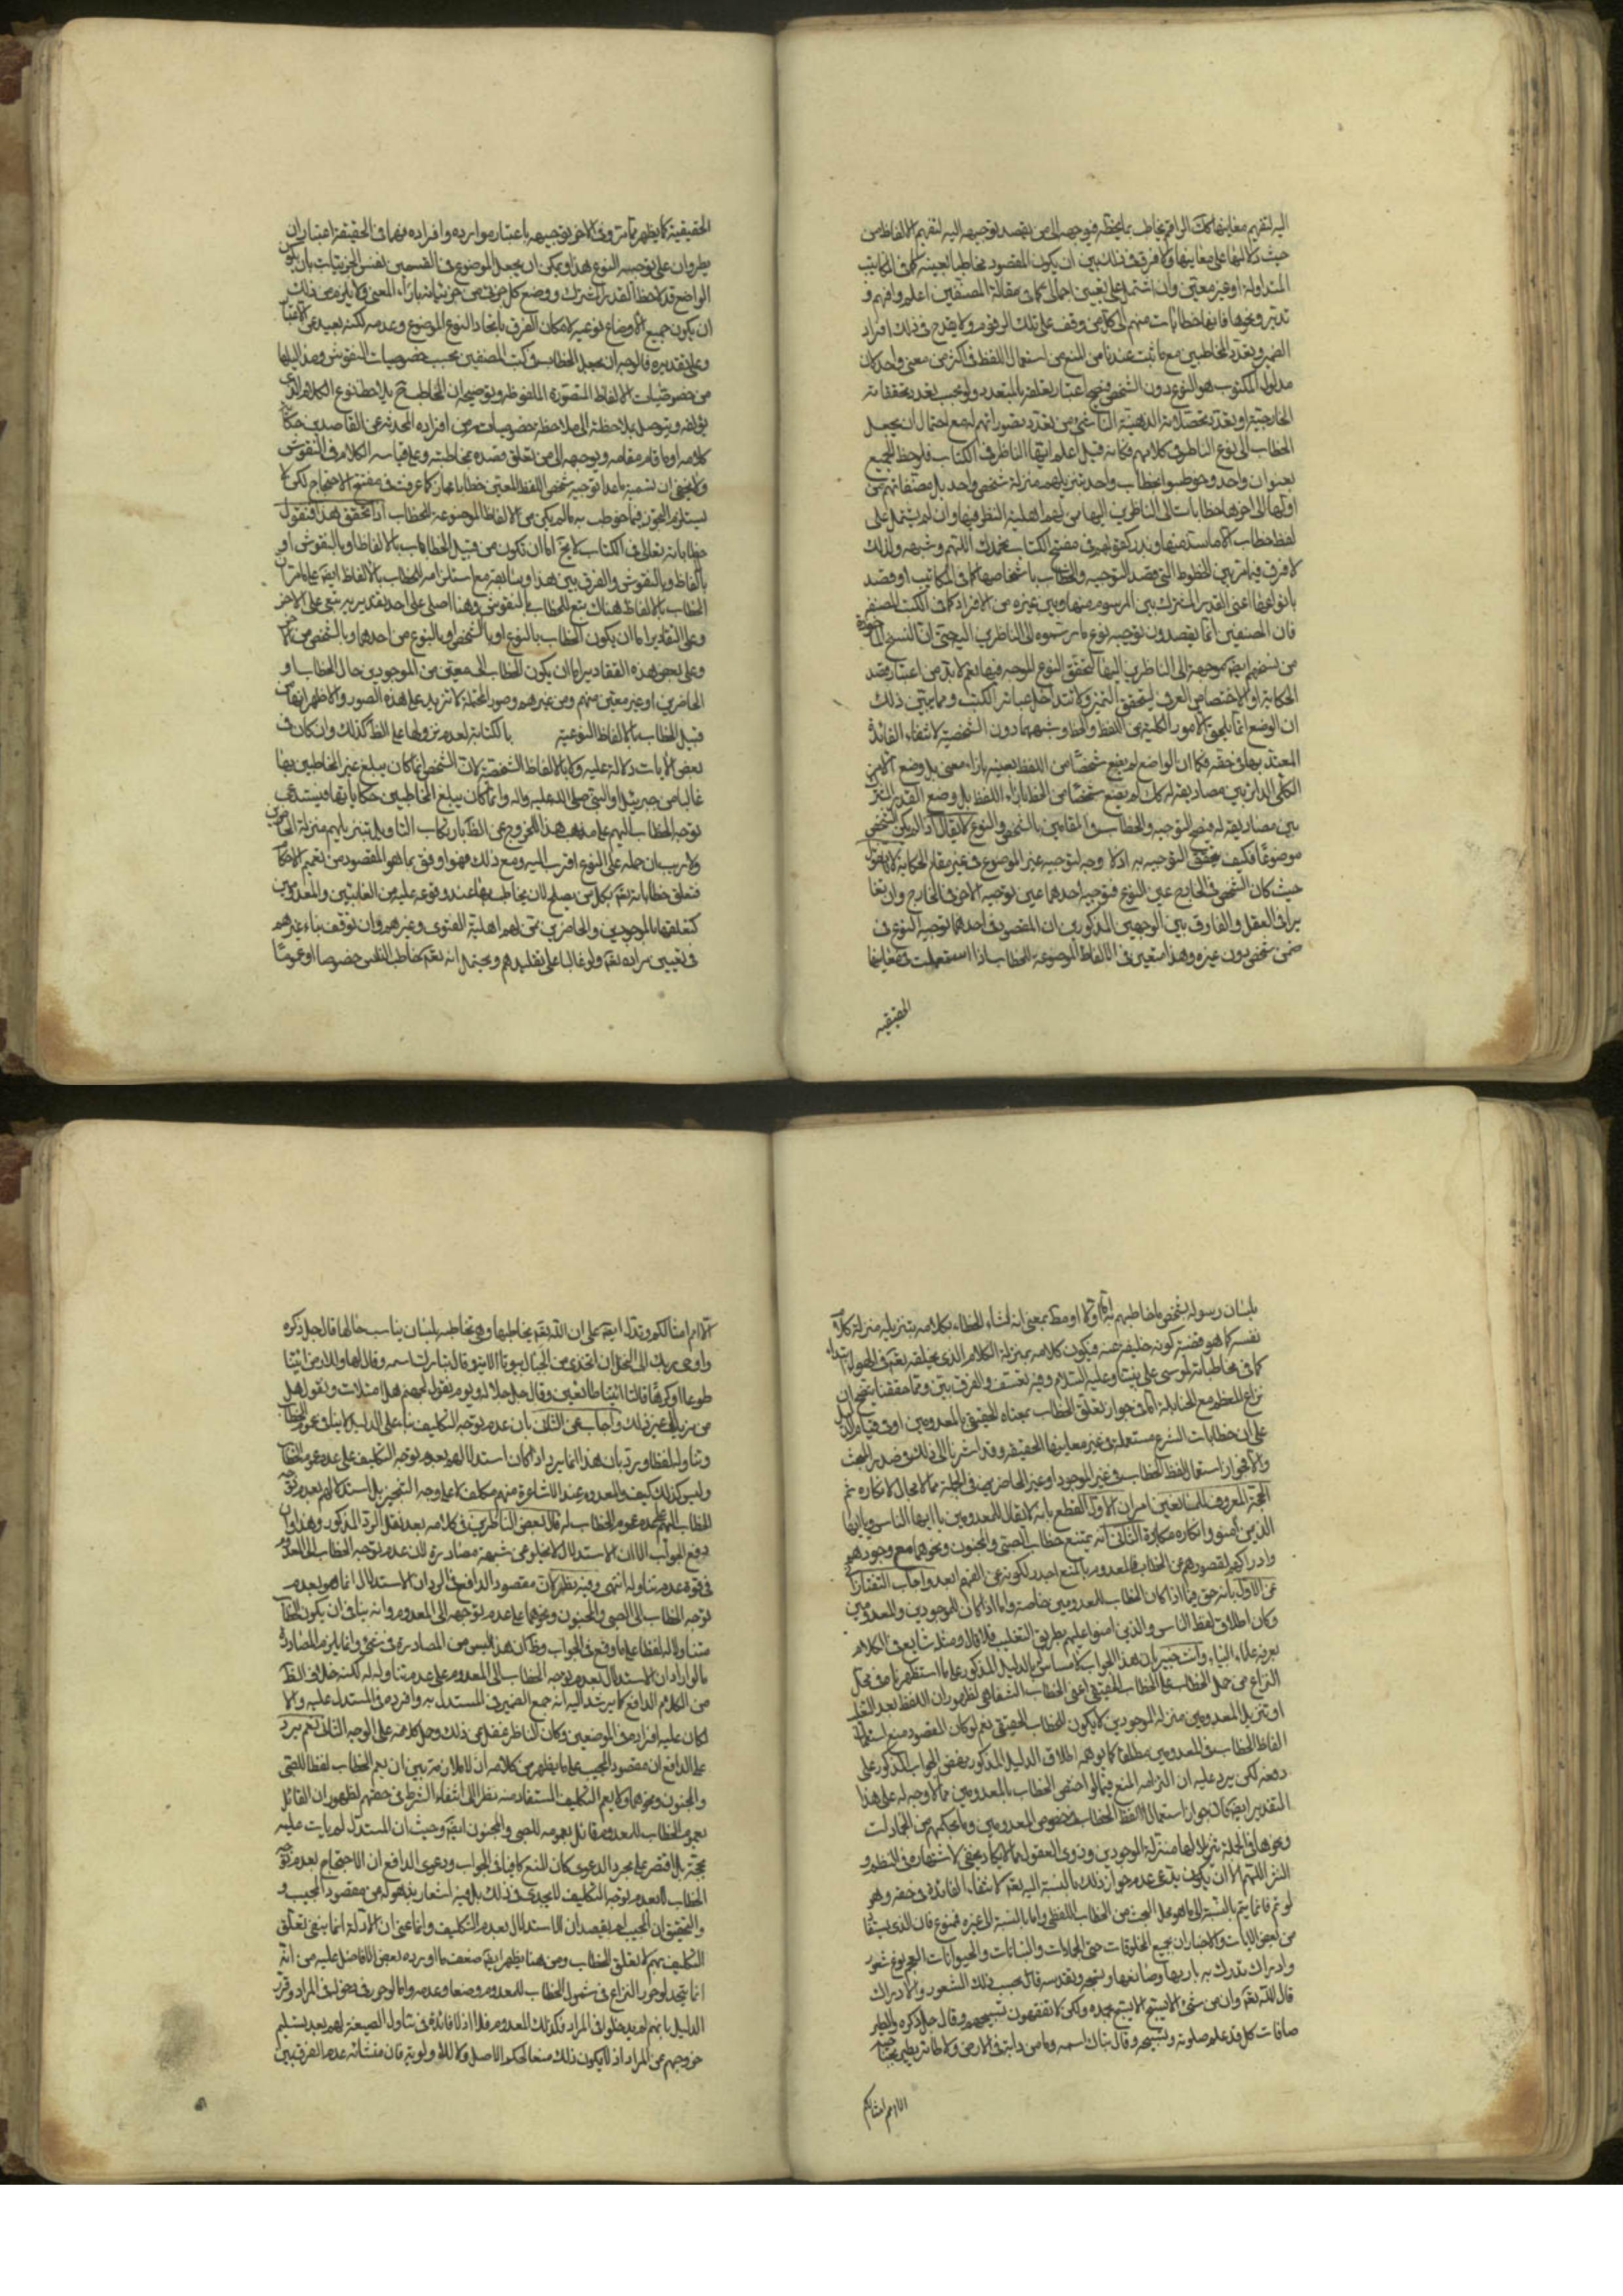 اليه لتفهيم معانيها كك الراقم يخاطب بما يخطه فيوجهه الى من يقصد توجيهه اليه لتفهيم الالفاظ من
حيث دلالتها على معانيها ولا فرق في ذلك بين ان يكون المقصود مخاطبا بعينه كما في المكاتيب
المتداولة او غير معين وان اشتمل على تعيين اجمالي كما في مقالة المصنفين اعلم وافهم و
تدبر ونحوها فانها خطابات منهم الى كل من وقف على تلك الرقوم ولا يقدح في ذلك افراد
الضمير وتعدد المخاطبين مع ما ثبت عندنا من المنع من استعمال اللفظ في اكثر من معنى واحد كان
مدلول المكتوب هو النوع دون الشخص فيصح اعتبار تعلقه بالمتعدد ولو بحسب تعدد تحققاته
الخارجية او تعدد تحصلاته الذهنية الناشئ من تعدد تصوراتهم له مع احتمال ان يجعل
الخطاب الى نوع الناظر في كلامهم فكانه قيل اعلم ايها الناظر في الكتاب فلوحظ الجميع
بعنوان واحد وخوطبوا بخطاب واحد بتنزيلهم منزلة شخص واحد بل مصنفاتهم من
اولها الى اخرها خطابات الى الناظرين اليها من لهم اهلية النظر فيها وان لم يشتمل على
لفظ خطاب الا ما شذ منها وندر كقولهم في مفتتح الكتاب نحمدك اللهم وشبهه ولذلك
لا فرق فيما مر بين الخطوط التي قصد التوجيه والخطاب باشخاصها كما في المكاتيب او قصد
بانواعها اعني القدر المشترك بين المرسوم منها وبين غيره من الافراد كما في الكتب المصنفة
فان المصنفين انما يقصدون توجيه نوع ما رسموه الى الناظرين اليه حتى ان النسخ الماخوذة
من نسخهم ايضا موجهة الى الناظرين اليها لتحقق النوع الموجه فيها نعم لا بد من اعتبار قصد
الحكاية او الاختصاص العرفي ليتحقق التميز ولا تتداخل عبائر الكتب ومما يبين ذلك
ان الوضع انما يلحق الامور الكلية من اللفظ والخط وشبههما دون الشخصية لانتفاء الفائدة
المعتد بها في حقه فكما ان الواضع لم يضع شخصا من اللفظ بعينه بازاء معنى بل وضع الامر
الكلي الدائر بين مصاديقه له كك لم يضع شخصا من الخط بازاء اللفظ بل وضع القدر المشترك
بين مصاديقه له فيصح التوجيه والخطاب في المقامين بالشخص والنوع لا يقال اذا لم يكن الشخص
موضوعا فكيف يتحقق التوجيه به اذ لا وجه لتوجيه غير الموضوع في غير مقام الحكاية لانا نقول
حيث كان الشخص في الخارج عين النوع فتوجيه احدهما عين توجيه الاخر في الخارج وان تغا
يرا في العقل والفارق بين الوجهين المذكورين ان المقصود في احدهما توجيه النوع في
ضمن شخص دون غيره وهذا متعين في الالفاظ الموضوعة للخطاب اذا استعملت في معانيها
الحقيقيه
الحقيقية كما يظهر مما مر وفي الاخر توجيهه باعتبار موارده وافراده فهما في الحقيقة اعتباران
يطرءان على توجيه النوع هذا ويمكن ان يجعل الموضوع في القسمين نفس الجزئيات بان يكون
الواضع قد لاحظ القدر المشترك ووضع كل جزئي من جزئياته بازاء المعنى ولا يلزم من ذلك
ان يكون جميع الاوضاع نوعية لامكان الفرق باتحاد النوع الموضوع وعدمه لكنه بعيد عن الاعتبار
وعلى تقديره فالوجه ان يجعل الخطاب في كتب المصنفين بحسب خصوصيات النقوش ومداليلها
من خصوصيات الالفاظ المتصورة الملفوظة وتوضيحه ان المخاطب ح يلاحظ نوع الكلام الذي
يؤلفه ويتوصل بملاحظته الى ملاحظة خصوصيات من افراده المحدثة عن القاصدين حكاية
كلامه او ما قام مقامه ويوجهه الى من تعلق قصده بمخاطبته وعلى قياسه الكلام في النقوش
ولا يخفى ان تسمية ما عدا توجيه شخص اللفظ المعين خطابا مجاز كما عرفت في مفتتح الاحتجاج لكن لا
يستلزم التجوز فيما خوطب به ما لم يكن من الالفاظ الموضوعة للخطاب اذا تحقق هذا فنقول
خطاباته تعالى في الكتاب لا يخ اما ان تكون من قبيل الخطاب بالالفاظ او بالنقوش او
بالفاظ وبالنقوش والفرق بين هذا وسابقه مع استلزامه للخطاب بالالفاظ ايضا على ما مر ان
الخطاب بالالفاظ هناك تبع للخطاب بالنقوش وهنا اصلي على احد تقديريه تبعي على الاخر
وعلى التقادير اما ان يكون الخطاب بالنوع او بالشخص او بالنوع من احدهما وبالشخص من الاخر
وعلى بعض هذه التقادير اما ان يكون الخطاب الى معين من الموجودين حال الخطاب او
الحاضرين او غير معين منهم ومن غيرهم وصور المحتملة لا تزيد على هذه الصور والاظهر انها من
قبيل الخطاب بالالفاظ النوعية بالكتابة لعدم نزولها على الظ كذلك وان كان في
بعض الايات دلالة عليه ولا بالالفاظ الشخصية لان الشخص انما كان يبلغ غير المخاطبين بها
غالبا من جبرئيل او النبي صلى الله عليه واله وانما كان يبلغ المخاطبين حكاياتها فيستدعي
توجه الخطاب اليهم على مذهب هذا الخروج عن الظ بارتكاب التاويل بتنزيلهم منزلة الحاضرين
ولا ريب ان حمله على النوع اقرب اليه ومع ذلك فهو اوفق بما هو المقصود من تعميم الاحكام
فتعلق خطاباته تعالى بكل من يصلح لان يخاطب بها عند وقوعه عليه من الغائبين والمعدومين
كتعلقها بالموجودين والحاضرين ممن لهم اهلية الفتوى وغيرهم وان توقف بناء غيرهم
في تعيين مراده تعالى ولو غالبا على تقليدهم ويحتمل انه تعالى يخاطب الناس خصوصا او عموما
بلسان رسوله بشخص ما خاطبهم به بمعنى انه انشاء الخطاب بكلامه بتنزيله منزلة كلام
نفسه كما هو قضية كونه خليفة عنه فيكون كلامه بمنزلة الكلام الذي يخلقه تعالى في الهواء ابتداء
كما في مخاطباته لموسى على نبينا وعليه السلام وفيه تعسف والفرق بين ومما حققنا يتضح ان
نزاع المعظم مع الحنابلة اما في جواز تعلق الخطاب بمعناه الحقيقي بالمعدومين او في قيام الدليل
على ان خطابات الشرع مستعملة في غير معانيها الحقيقية وقد اشرنا الى ذلك في صدر المبحث
والا فجواز استعمال لفظ الخطاب في غير الموجود او غير الحاضرين في الجملة مما لا مجال لانكاره ثم
الحجة المعروفة للمانعين امران الاول القطع بانه لا يقال للمعدومين يا ايها الناس ويا ايها
الذين امنوا وانكاره مكابرة الثاني انه يمتنع خطاب الصبي والمجنون ونحوهما مع وجودهم
وادراكهم لقصورهم عن الخطاب فالمعدوم بالمنع اجدر لكونه عن الفهم ابعد واجاب التفتازاني
عن الاول بانه حق فيما اذا كان الخطاب للمعدومين خاصة واما اذا كان للموجودين والمعدومين
وكان اطلاق لفظ الناس والذين امنوا عليهم بطريق التغليب فلا قال ومثله شايع في الكلام
يعرفه علماء البيان وانت خبير بان هذا الجواب لا مساس له بالدليل المذكور على ما استظهرناه في محل
النزاع من حمل الخطاب على الخطاب الحقيقي اعني الخطاب الشفاهي لظهور ان اللفظ بعد التغليب
او تنزيل المعدومين منزلة الموجودين لا يكون للخطاب الحقيقي نعم لو كان المقصود منع استعمال
الفاظ الخطاب في المعدومين مطلقا كما يوهمه اطلاق الدليل المذكور نهض الجواب المذكور على
دفعه لكن يرد عليه ان التزامه المنع فيما لو اختص الخطاب بالمعدومين مما لا وجه له على هذا
التقدير ايضا كان جواز استعمال الفاظ الخطاب في خصوص المعدومين وما بحكمهم من الجمادات
ونحوها في الجملة تنزيلا لها منزلة الموجودين وذوي العقول مما لا يكاد يخفى لاشتهاره في النظم و
النثر اللهم الا ان يكون يدعي عدم جواز ذلك بالنسبة اليه تعالى لانتفاء الفائدة في حقه وهو
لو تم فانما يتم بالنسبة الى ما هو محل البحث من الخطاب اللفظي واما بالنسبة الى غيره فممنوع فان الذي يستفاد
من بعض الايات والاخبار ان جميع المخلوقات حتى الجمادات والنباتات والحيوانات العجم نوع شعور
وادراك تدرك به باريها وصانعها وتسبحه وتقدسه قائل بحسب ذلك الشعور والادراك
قال الله تعالى وان من شيء الا يسبح بحمده ولكن لا تفقهون تسبيحهم وقال جل ذكره والطير
صافات كل قد علم صلوته وتسبيحه وقال تبارك اسمه وما من دابة في الارض ولا طائر يطير بجناحيه
الا امم امثالكم
الا امم امثالكم وتدل ايضا على ان الله تعالى يخاطبها وهي تخاطبه بلسان يناسب حالها قال جل ذكره
واوحى ربك الى النحل ان اتخذي من الجبال بيوتا الاية وقال تبارك اسمه وقال لها وللارض ائتيا
طوعا او كرها قالتا اتينا طائعين وقال جل جلاله يوم يقول لجهنم هل امتلات وتقول هل
من مزيد الى غير ذلك واجاب عن الثاني بان عدم توجه التكليف بناء على الدليل لا ينافي عموم الخطاب
وتناوله لفظا ورد بان هذا انما يرد اذا كان استدلالهم بعدم توجه التكليف على عدم عموم الخطاب
وليس كذلك كيف والمعدوم عند الاشاعرة منهم مكلف لا على وجه التنجيز بل استدلالهم بعدم توجه
الخطاب اليهم على عدم عموم الخطاب له قال بعض الناظرين في كلامه بعد نقل الرد المذكور وهذا وان
دفع الجواب الا ان الاستدلال لا يخلو عن شبهة مصادرة لان عدم توجه الخطاب الى المعدوم
في قوة عدم تناوله انتهى وفيه نظر لان مقصود الدافع في الرد ان الاستدلال انما هو بعدم
توجه الخطاب الى الصبي والمجنون ونحوهما على عدم توجهه الى المعدوم وانه ينافي ان يكون الخطاب
متناولا له لفظا على ما وقع في الجواب وظ ان هذا ليس من المصادرة في شيء وانما يلزم المصادرة
ما لو اراد ان الاستدلال بعدم توجه الخطاب الى المعدوم على عدم تناوله له لكنه خلاف الظ
من الكلام الدافع كما يرشد اليه انه جمع الضمير في المستدل به وافرده في المستدل عليه والا
لكان عليه افراده في الموضعين وكان الناظر غفل عن ذلك وحمل كلامه على الوجه الثاني نعم يرد
على الدافع ان مقصود المجيب على ما يظهر من كلامه ان لا ملازمة بين ان يعم الخطاب لفظا للصبي
والمجنون ونحوهما ولا يعم التكليف المستفاد منه نظرا الى انتفاء الشرط في حقهم لظهور ان القائل
بعموم الخطاب للمعدوم قائل بعمومه للصبي والمجنون ايضا وحيث ان المستدل لم يات عليه
بحجة بل اقتصر على مجرد الدعوى كان المنع كافيا في الجواب ودعوى الدافع ان الاحتجاج بعدم توجه
الخطاب لا بعدم توجه التكليف لا يجدي في ذلك بل فيه اشعار بذهوله عن مقصود المجيب و
والتحقيق ان المجيب لم يقصد ان الاستدلال بعدم التكليف وانما عنى ان الادلة انما ينفي تعلق
التكليف بهم لا تعلق الخطاب ومن هنا يظهر ايضا ضعف ما اورده بعض الافاضل عليه من انه
انما يتجه لو جوز النزاع في شمول الخطاب للمعدوم وضعا وعدمه واما لو حرر في دخوله في المراد وقرر
الدليل بانهم لم يدخلوا في المراد فكذلك المعدوم فلا اذ لا فائدة في تناول الصيغة لهم بعد تسليم
خروجهم عن المراد اذ لا يكون ذلك منعا لحكم الاصل ولا للاولوية فان منشائه عدم الفرق بين